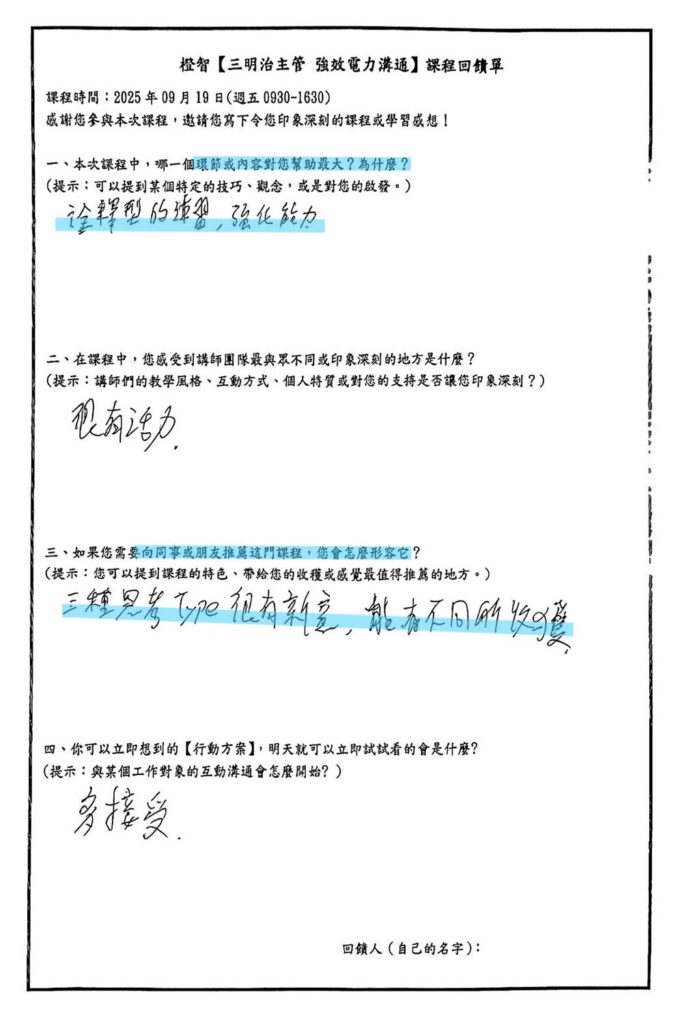 橙智【三明治主管 強效電力溝通】課程回饋單
課程時間：2025 年 09 月 19 日(週五 0930-1630)
感謝您參與本次課程，邀請您寫下令您印象深刻的課程或學習感想！
一、本次課程中，哪一個環節或內容對您幫助最大？為什麼？
(提示：可以提到某個特定的技巧、觀念，或是對您的啟發。)
詮釋型的練習，強化能力
二、在課程中，您感受到講師團隊最與眾不同或印象深刻的地方是什麼？
(提示：講師們的教學風格、互動方式、個人特質或對您的支持是否讓您印象深刻？)
很有活力.
三、如果您需要向同事或朋友推薦這門課程，您會怎麼形容它？
(提示：您可以提到課程的特色、帶給您的收穫或感覺最值得推薦的地方。)
三種思考 Type 很有新意，能有不同所收獲.
四、你可以立即想到的【行動方案】，明天就可以立即試試看的會是什麼?
(提示：與某個工作對象的互動溝通會怎麼開始? )
多接受.
回饋人（自己的名字）：